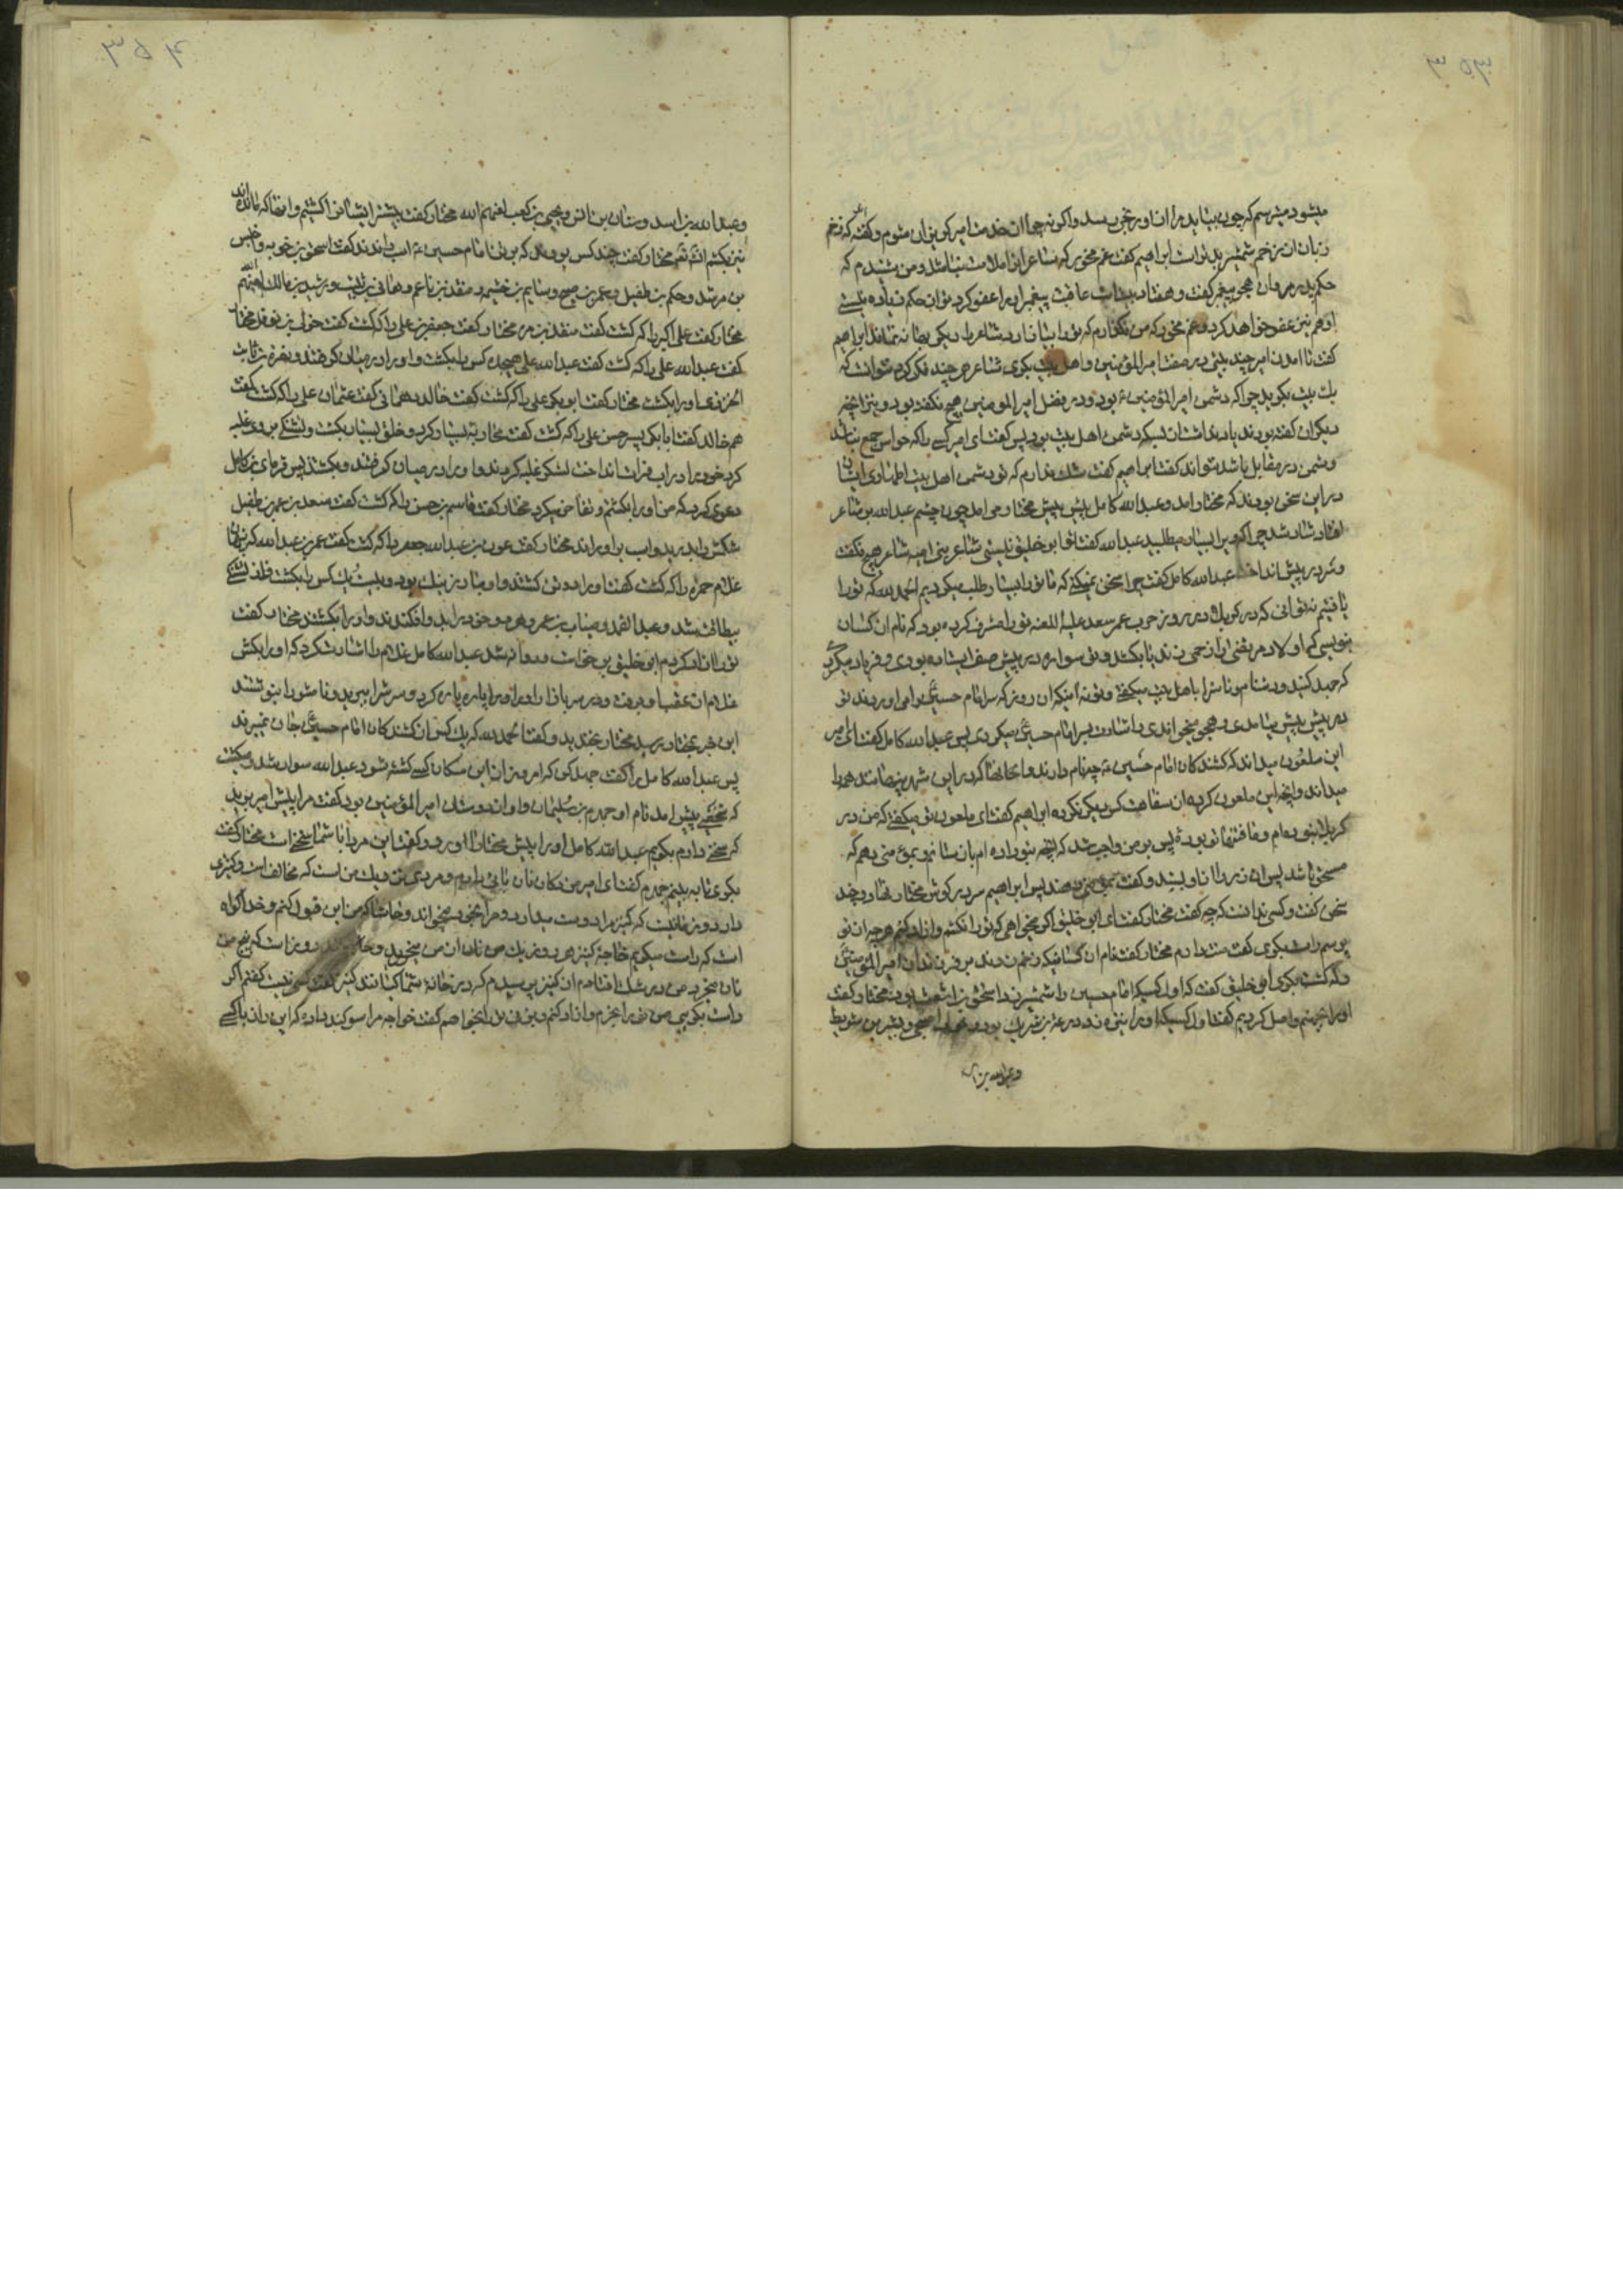 ۳۵۳
میشود میترسم که چون بیاید مرا از او رنجی رسد واکر نه چرا از خدمت امیر کریزان میشوم و گفته که زخم
زبان از زخم شمشیر بدتر است ابراهیم گفت غم مخور که شاعرانرا ملامت نباشد و من شنیدم که
حکم بدر مروان هجو پیغمبر گفت و هفتاد بیت است عاقبت پیغمبر او را عفو کرد تو از حکم زیاده نیستی
او هم نیز عفو خواهد کرد و غم مخور که من نکذارم که تو را شاعر را ابراهیم
گفت تا امدن امیر چند بیتی در صفت امیر المؤمنین و اهل بیت بکوی شاعر هر چند فکر کرد نتوانست که
یک بیت بکوید چرا که دشمن امیر المؤمنین ء بود و در فضل امیر المومنین هیچ نکفته بود و نیز انچه
دیکران گفته بودند یاد نداشت از بس که دشمن اهل بیت بود پس گفت ای امیر کسی را که حواس جمع نباشد
و دشمن در مقابل باشد نتواند گفت ابراهیم گفت شک ندارم که تو دشمن اهل بیت اطهاری
در این سخن بودند که مختار امد و عبدالله کامل پیش پیش مختار می امد چون چشم عبدالله بر شاعر
افتاد شاد شد چرا که او را بسیار میطلبید عبدالله گفت تو ابو خلیق نیستی شاعر بنی امیه شاعر هیچ نکفت
و سر در پیش انداخت عبدالله کامل گفت چرا سخن نمیکنی که ما تو را بسیار طلب میکردیم الحمد لله که تو را
یافتیم نه تو انی که در کربلا در روز حرب عمر سعد علیه اللعنه تو را مشرف کرده بود که نام ان کسان
بنویسی که اولاد مرتضی را زخمی زنند یا بکشند و تو سواره در پیش صف ایستاده بودی و فریاد میکردی
که جهد کنید و دشنام و ناسزا با اهل بیت میکفتی و تو نه اینکه ان روز که سر امام حسین را می اوردند تو
در پیش پیش میامدی و هجو میخواندی و اشارت بسر امام حسین میکردی پس عبدالله کامل گفت ای امیر
این ملعون میداند که کشندکان امام حسین ء چه نام دارند و کجا که در این شهر پنهانند همه را
میداند و انچه این ملعون کرده از سفاهت کس دیکر نکرده ابراهیم گفت ای ملعون تو میکفتی که من در
کربلا نبودهام و تو بودهٔ پس بر من واجب شد که انچه بتو داده ام باز ستانم و بمؤمنی دهم که
مستحق باشد پس ان زر را از او بستد و گفت بدهند پس ابراهیم سر در کوش مختار نهاد و چند
سخن گفت و کسی ندانست که چه گفت مختار گفت ای ابو خلیق اکر میخواهی که تو را نکشم و ازاد کنم هر چه از تو
پرسم راست بکوی گفت منت دارم مختار گفت نام ان کسانیکه زخم زدند بر فرزندان امیر المؤمنین
و که کشت بکوی ابو خلیق گفت که اول کسیکه امام حسین را شمشیر زد اسحق بن اشعث بود مختار گفت
او را بجهنم واصل کردیم گفت اول کسیکه او را نیزه زد درعة بن شریک بود و صبحی و بشیر بن سویط
و عبدالله بن
۳۵۴
و عبدالله بن اسد و سنان بن انس و یحیی بن کعب لعنهم الله مختار گفت بیشتر ایشانرا کشتیم و انها که مانده اند
نیز بکشم انشاءالله مختار گفت چند کس بودند که بر تن امام حسین ء اسب راندند گفت اسحق بن حویه و اخنس
بن مرثد و حکم بن طفیل و عمر بن صبیح و سالم بن خثیمه و منقذ بن ناعم و هانی بن ثبیت و رشید بن مالک لعنهم الله
مختار گفت علی اکبر را که کشت گفت منقذ بن مره مختار گفت جعفر بن علی را که کشت گفت خولی بن نوفل مختار
گفت عبدالله علی را که کشت گفت عبدالله علی هیجده کس را بکشت و او را در میان کرفتند و نفرة بن ثابت
او را بکشت مختار گفت ابو بکر علی را که کشت گفت خالد همدانی گفت عثمان علی را که کشت گفت
هم خالد گفت ابا بکر پسر حسن علی را که کشت گفت محاربهٔ بسیار کرد و خلق بسیار بکشت و تشنکی بر وی غلبه
کرد خود را در اب فرات انداخت لشکر غلبه کردند او را در میان کرفتند و بکشتند پس بن کامل
دعوی کرد که من او را بکشتم و تفاخر میکرد مختار گفت قاسم بن حسن را که کشت گفت سعد بن عمر بن طفیل
شکمش را بدرید و اسب بر او راند مختار گفت عون بن عبدالله جعفر را که کشت گفت عمر بن عبدالله گفت
غلام حمزه را که کشت گفت او را دو تن کشتند و مبارز نیک بود و بیست یک کس را بکشت
بیطاقت شد و عبدالصمد و میناب بن عمر و هر دو حق در امدند و افکندند و او را بکشتند مختار گفت
تو را ازاد کردم ابو خلیق بر خاست و روانه شد عبدالله کامل غلام را اشارت کرد که او را بکش
غلام از عقب او برفت و در سر بازار او را پاره پاره کرد و سرش را ببرید و نامش را بنوشتند
این خبر بمختار رسید مختار بخندید و گفت الحمد لله که یک کس از کشندکان امام حسین جان نمیبرند
پس عبدالله کامل را گفت جهد کن که امروز از این سکان کسی کشته شود عبدالله سوار شد و میکشت
که شخصی پیش امد نام او حمدم بن سلیمان و او از دوستان امیر المؤمنین بود گفت مرا پیش امیر برید
که سخنی دارم بکویم عبدالله کامل او را پیش مختار اورد و گفت این مرد با شما سخنی است مختار گفت
بکوی تا به بینم حمدم گفت ای امیر من دکان نان بائی دارم و مردی نزدیک من است که مخالف است و کنیزی
دارد و زمانیست که کنیز مرا دوست میدارد و مرا بخود میخواند و حاشا که من این قبول کنم و خدا کواه
است که راست میکویم خاجهٔ کنیز هر روز یک من نان از من میخرید و حالا چند روز است که پنج من
نان میخرد من در شک افتادم ان کنیز پرسیدم که در خانه شما کیانند کنیز گفت کسی نیست گفتم اکر
راست بکویی من تو را بخرم و ازاد کنم و بزنی بخواهم گفت خواجه مرا سوکند داده که این راز با کسی